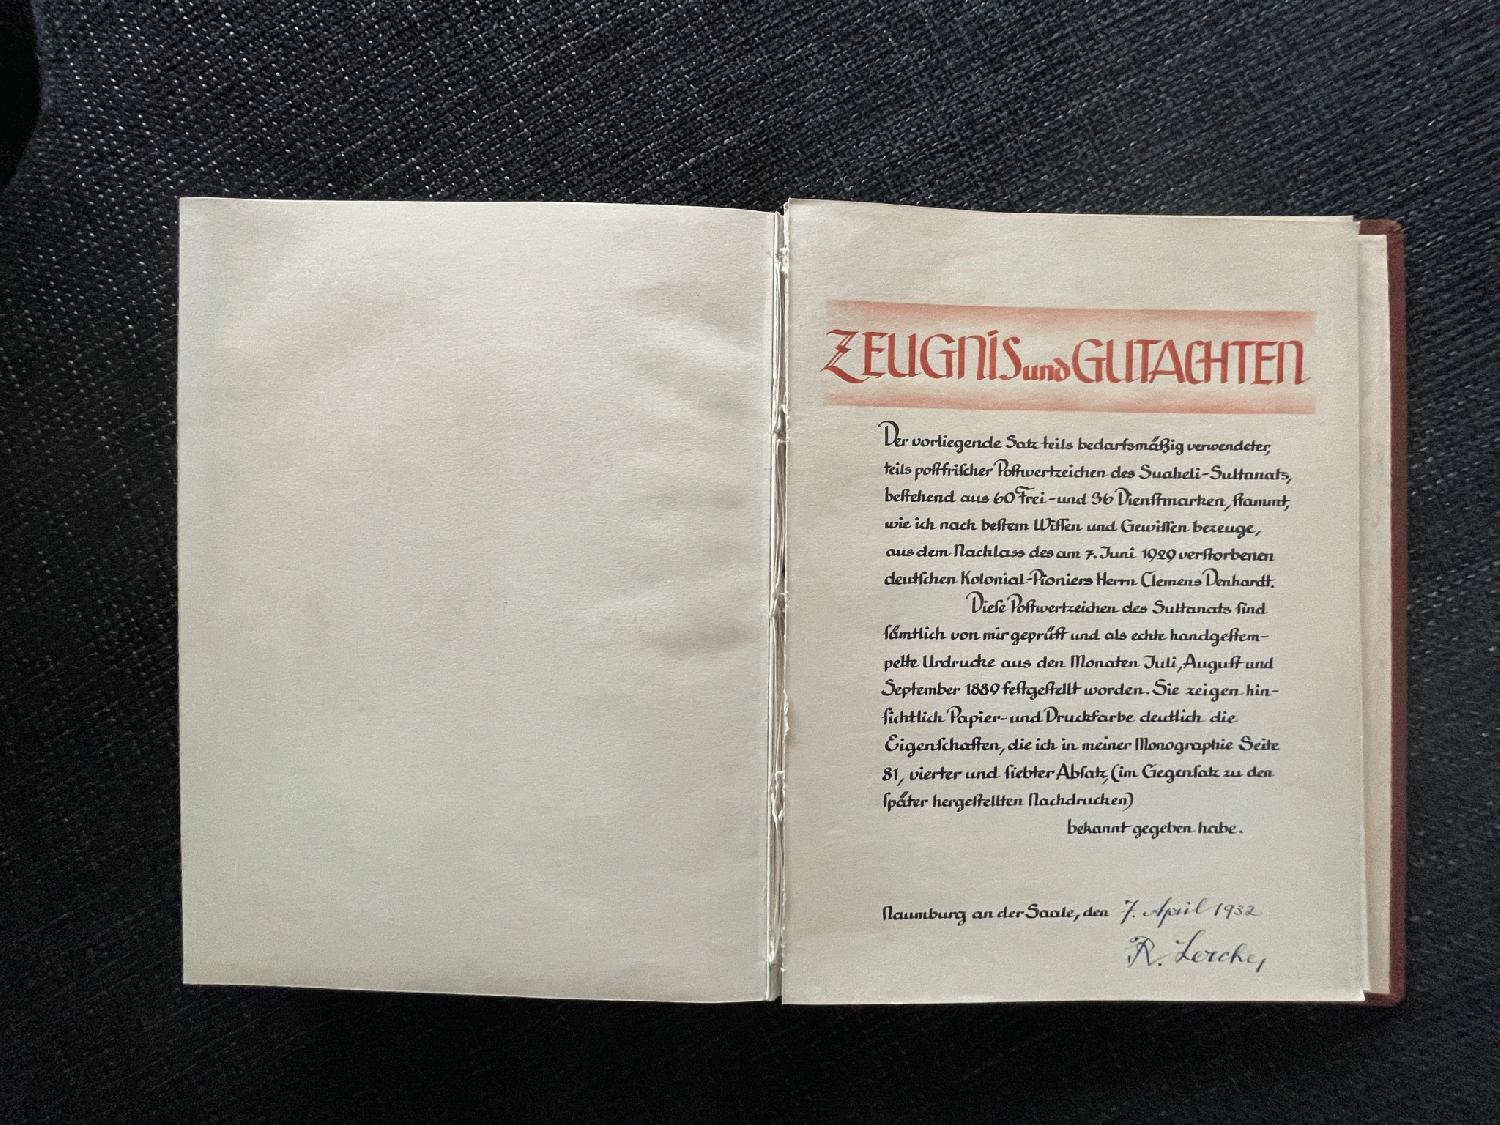 ZEUGNIS und GUTACHTEN
Der vorliegende Satz teils bedarfsmäßig verwendeter,
teils postfrischer Postwertzeichen des Suaheli-Sultanats,
bestehend aus 60 Frei- und 36 Dienstmarken, stammt,
wie ich nach bestem Wissen und Gewissen bezeuge,
aus dem Nachlass des am 7. Juni 1929 verstorbenen
deutschen Kolonial-Pioniers Herrn Clemens Denhardt.
Diese Postwertzeichen des Sultanats sind
sämtlich von mir geprüft und als echte handgestem-
pelte Urdrucke aus den Monaten Juli, August und
September 1889 festgestellt worden. Sie zeigen hin-
sichtlich Papier- und Druckfarbe deutlich die
Eigenschaften, die ich in meiner Monographie Seite
81, vierter und siebter Absatz, (im Gegensatz zu den
später hergestellten Nachdrucken)
bekannt gegeben habe.
Naumburg an der Saale, den 7. April 1932
R. Lerche,